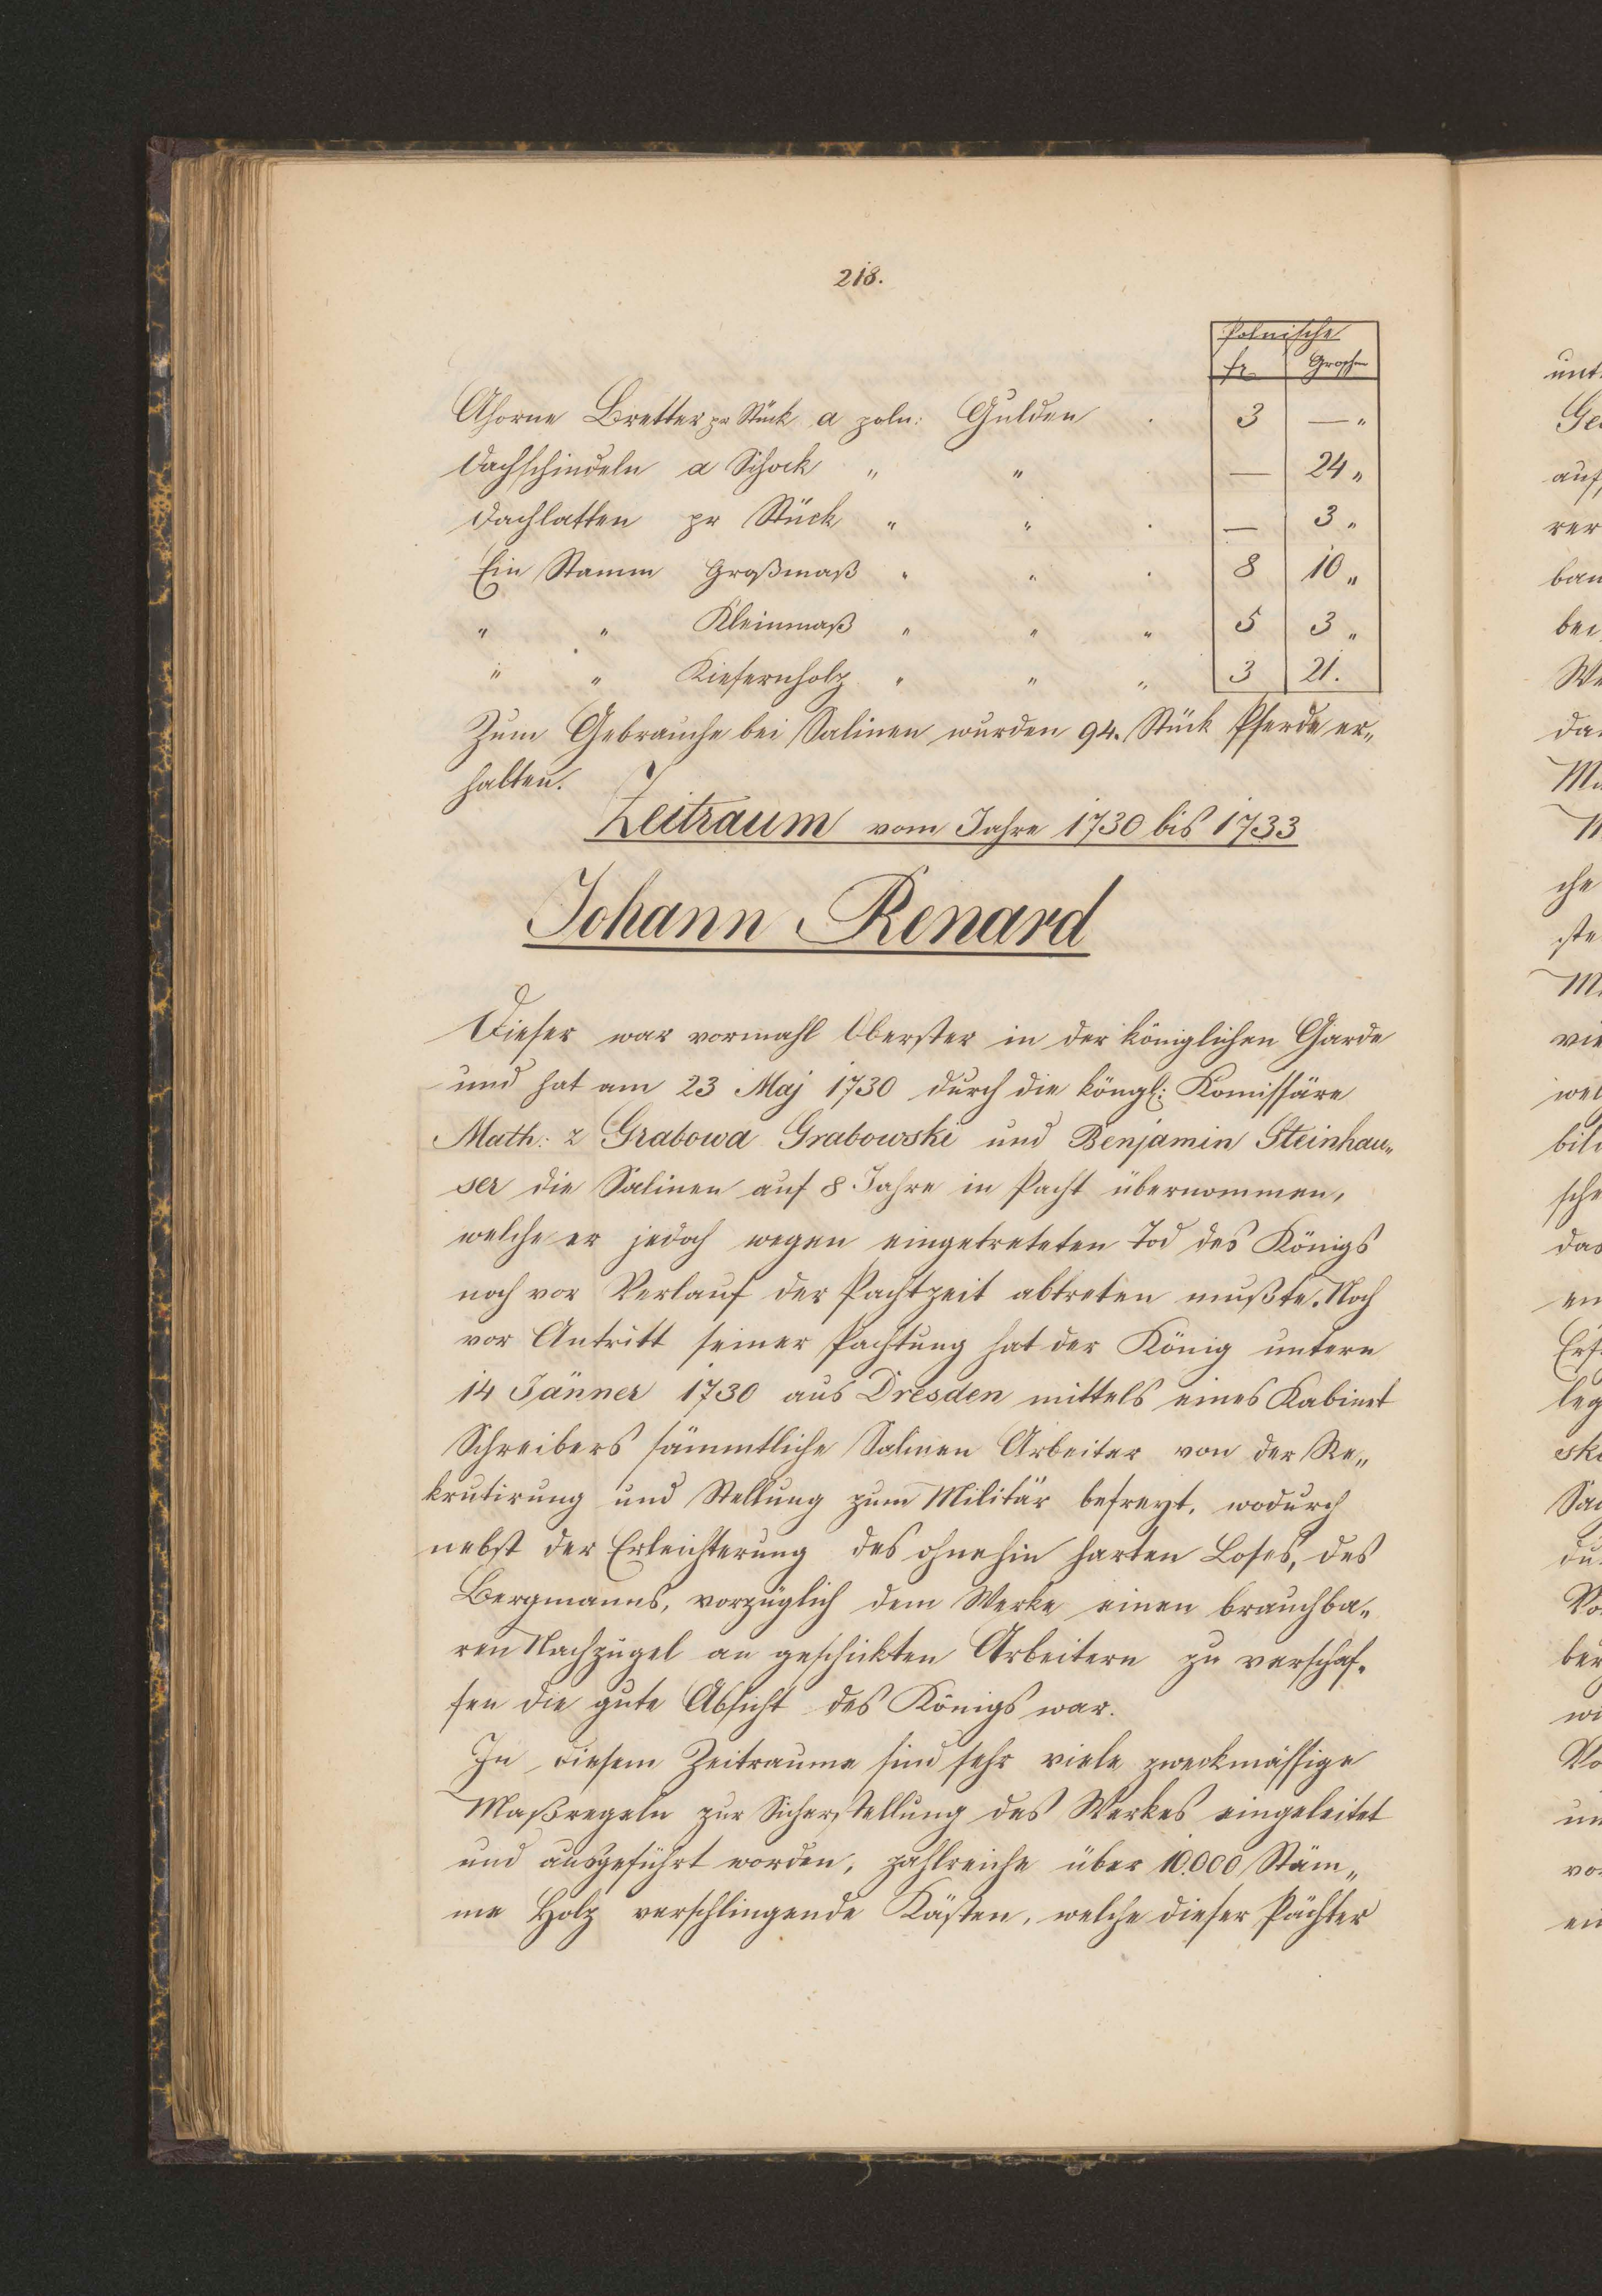 218.
Polnische
fr Groschen
Ahorne Bretter pr Stück a poln: Gulden . 3 — "
Dachschindeln a Schock " " . — 24 "
Dachlatten pr Stück " " . — 3 "
Ein Stamm Großmaß " " . 8 10 "
" " Kleinmaß " " " 5 3 "
" " Kiefernholz " " " 3 21.
Zum Gebrauche bei Salinen wurden 94. Stück Pferde er„
halten.
Zeitraum vom Jahre 1730 bis 1733
Johann Renard
Dieser war vormahl Oberster in der königlichen Garde
und hat am 23 Maj 1730 durch die köngl: Komissäre
Math: z Grabowa Grabowski und Benjamin Steinhau„
ser die Salinen auf 8 Jahre in Pacht übernommen,
welche er jedoch wegen eingetreteten Tod des Königs
noch vor Verlauf der Pachtzeit abtreten mußte. Noch
vor Antritt seiner Pachtung hat der König untern
14 Jänner 1730 aus Dresden mittels eines Kabinet
Schreibers sämmtliche Salinen Arbeiter von der Re„
krutirung und Stellung zum Militär befreyt, wodurch
nebst der Erleichterung des ohnehin harten Loses, des
Bergmanns, vorzüglich dem Werke einen brauchba„
ren Nachzügel an geschickten Arbeitern zu verschaf„
fen die gute Absicht des Königs war.
In diesem Zeitraume sind sehr viele zweckmässige
Maßregeln zur Sicherstellung des Werkes eingeleitet
und ausgeführt worden, zahlreiche über 10.000 Stäm„
me Holz verschlingende Kästen, welche dieser Pächter